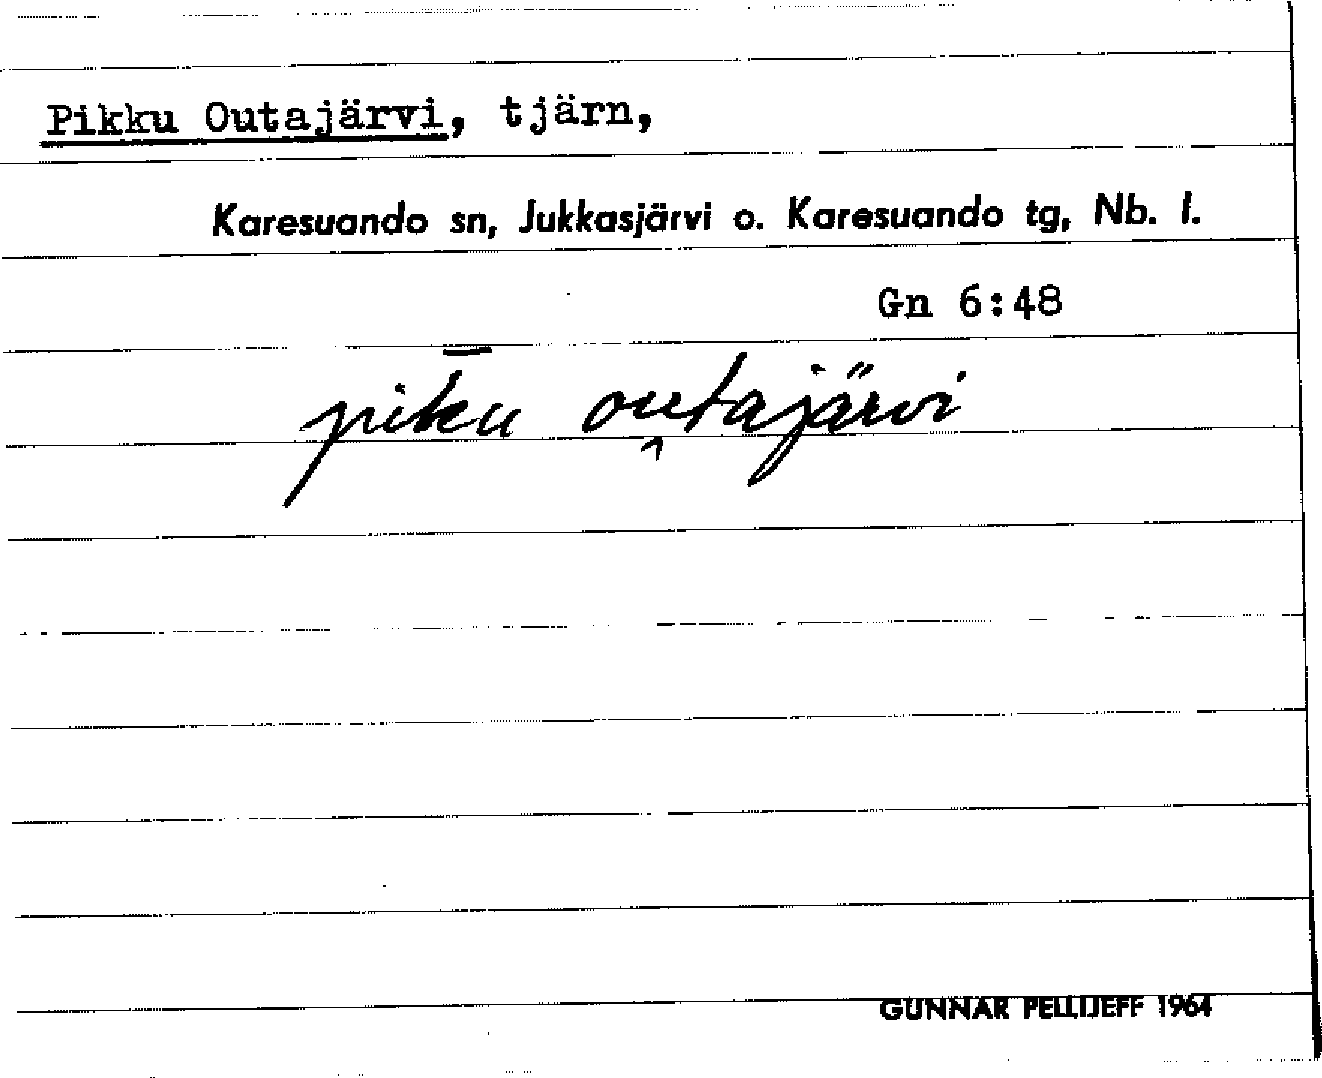 Pikku Outajärvi, tjärn,
Karesuando sn, Jukkasjärvi o. Karesuando tg, Nb. l.
Gn 6:48
pik̄u ou̯tajärvi
GUNNAR PELLIJEFF 1964